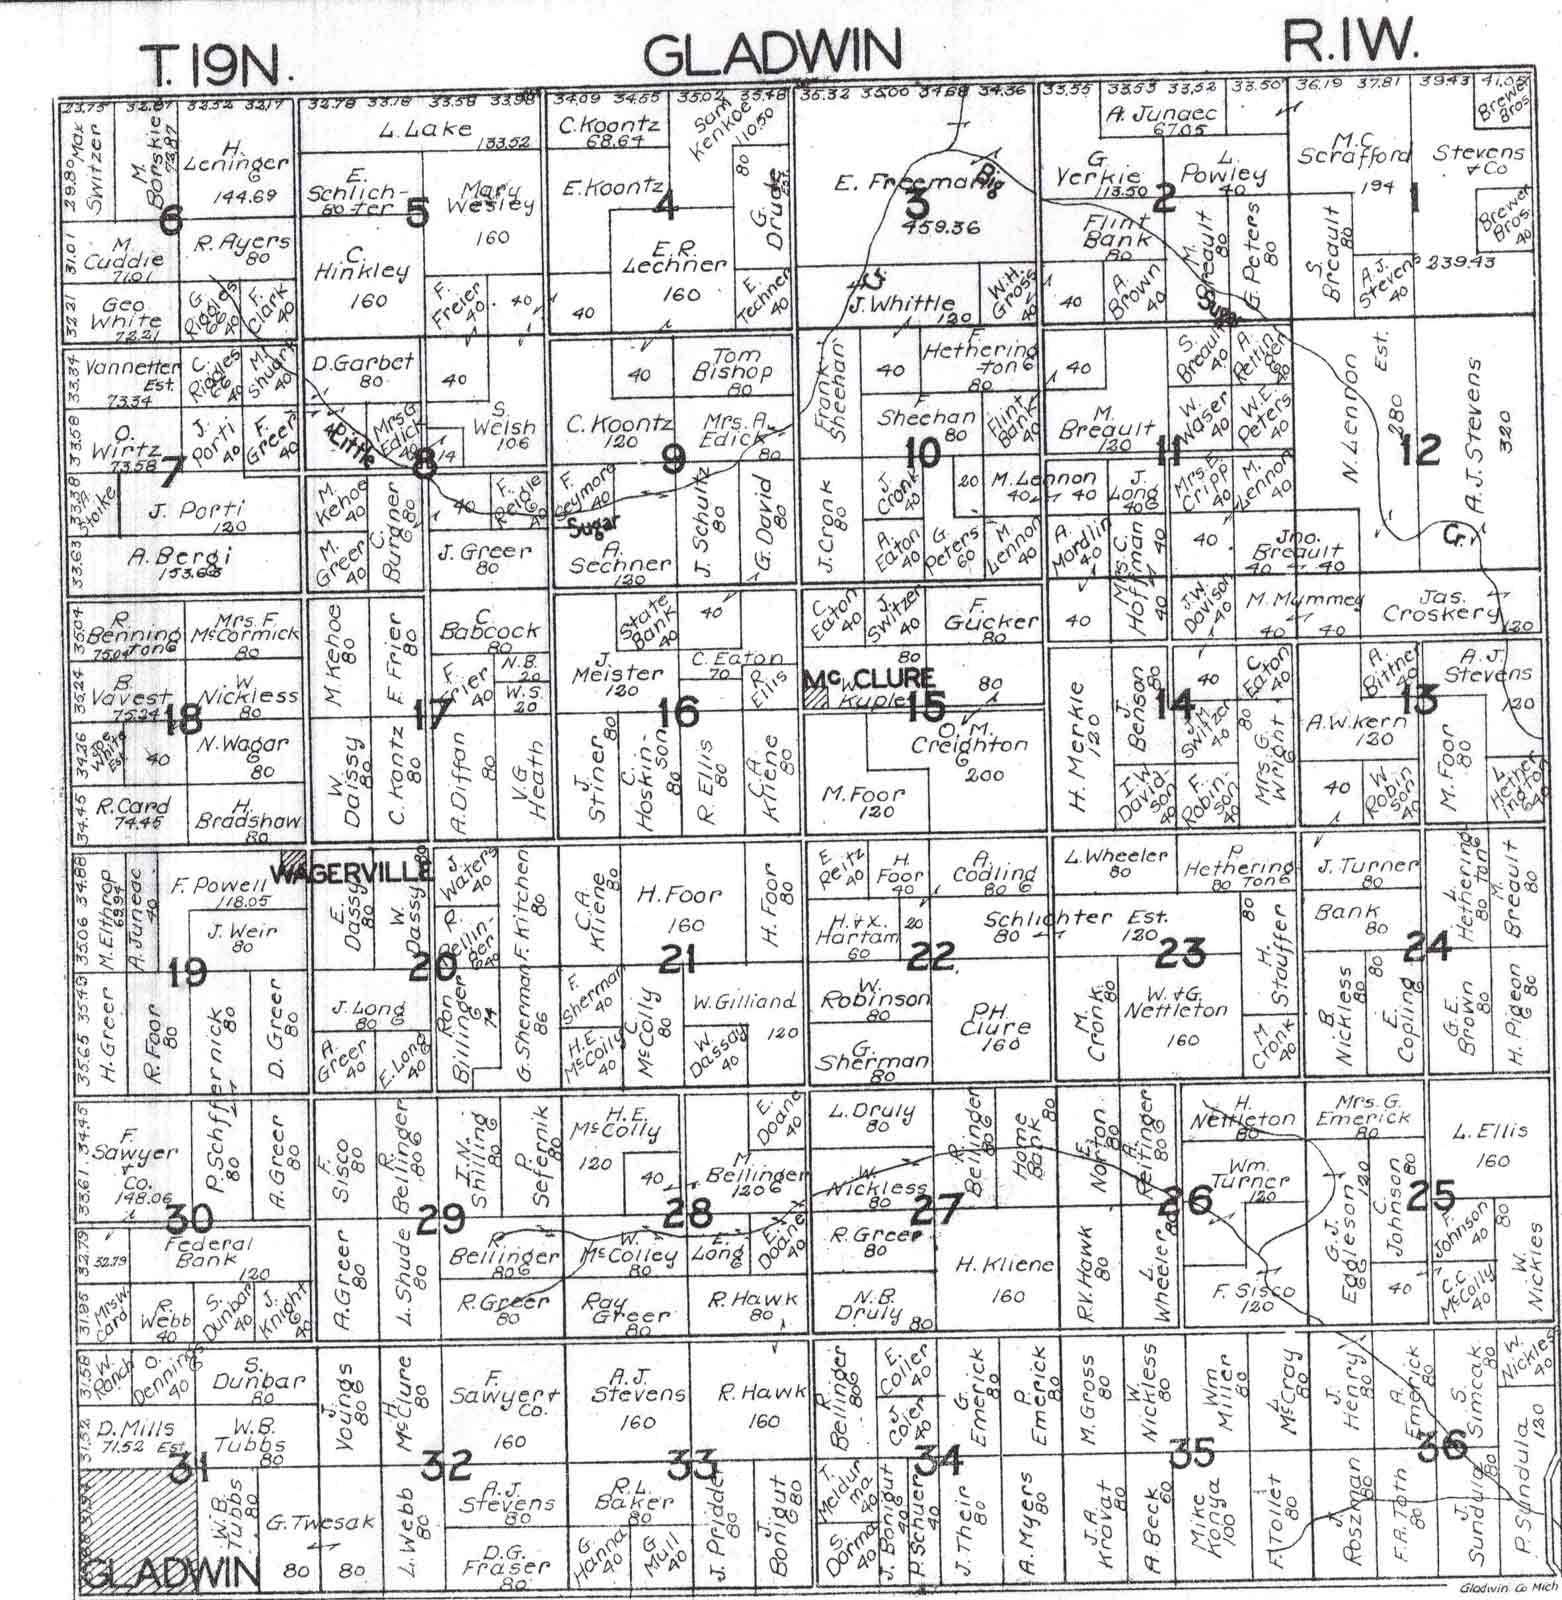 T. 19N.
GLADWIN
R.1W.
23.75 32.87 32.52 32.17 32.78 33.18 33.58 33.98 34.09 34.55 35.02 35.48 35.32 35.00 34.68 34.36 33.55 33.53 33.52 33.50 36.19 37.81 39.43 41.05
29.80 Max
Switzer
M.
Borskie
73.87
H.
Leninger
144.69
6
M.
Cuddie
71.01
31.01
R. Ayers
80
Geo.
White
72.21
32.21
G.
Riggles
40
F.
Clark
40
L. Lake
133.52
E.
Schlich-
ter
80
Mary
Wesley
160
5
C.
Hinkley
160
F.
Freier
40
40
C. Koontz
68.64
Sam
Kenkoe
110.50
E. Koontz
4
80
G.
Drude
Est.
E.R.
Lechner
160
40
E.
Techner
40
E. Freeman
3
459.36
Big
C.
J. Whittle
120
W.H.
Gross
40
A. Junaec
67.05
G.
Yerkie
113.50
2
L.
Powley
40
Flint
Bank
80
M.
Breault
80
G. Peters
80
40
A.
Brown
40
Sugar
M.C.
Scrafford
194
1
Brewer
Bros.
Stevens
& Co
Brewer
Bros.
40
S.
Breault
80
A.J.
Stevens
40
239.43
33.34
Vannetter
Est.
73.34
C.
Riggles
40
M.
Shuark
40
33.58
O.
Wirtz
73.58
7
J.
Porti
40
F.
Greer
40
33.38
Stoike
J. Porti
120
33.63
A. Bergi
153.63
D. Garbet
80
40
Little
Mrs G.
Edick
14
S.
Welsh
106
8
M.
Kehoe
40
C.
Burgner
80
40
F.
Reigle
40
M.
Greer
40
J. Greer
80
40
Tom
Bishop
80
C. Koontz
120
Mrs. A.
Edick
80
9
F.
Seymore
40
Sugar
A.
Sechner
120
J. Schultz
80
G. David
80
Frank
Sheehan
40
F.
Hethering
ton
80
F.
Sheehan
80
Flint
Bank
40
10
J. Cronk
80
J.
Cronk
40
20
M. Lennon
40 40
A.
Eaton
40
G.
Peters
60
M.
Lennon
40
40
S.
Breault
40
M.
Breault
120
W.
Waser
40
W.E.
Peters
40
11
J.
Long
40
Mrs. E.
Cripp
40
M.
Lennon
40
A.
Mordlin
40
Mrs. C.
Hoffman
40
40
40
Jno.
Breault
40 40
N. Lennon
280
Est.
12
A. J. Stevens
320
C.
35.04
R.
Benning
ton
75.04
Mrs. F.
McCormick
80
35.24
B.
Vavest
75.24
W.
Nickless
80
18
34.26
Joe
White
Est.
40
N. Wagar
80
34.45
R. Card
74.45
H.
Bradshaw
80
M. Kehoe
80
F. Frier
80
C.
Babcock
80
F.
Frier
40
N.B.
20
W.S.
20
17
W.
Daissy
80
C. Kontz
80
A. Diffan
80
V.G.
Heath
State
Bank
40
40
J.
Meister
120
C. Eaton
70
R.
Ellis
16
J.
Stiner
80
C.
Hoskin-
son
80
R. Ellis
80
C.A.
Kliene
80
C.
Eaton
40
J.
Switzer
40
F.
Gucker
80
80
McCLURE
W.
Kuple
80
15
O. M.
Creighton
200
M. Foor
120
40
J.W.
Davison
40
M. Mummey
40 40
Jas.
Croskery
120
H. Merkle
120
J.
Benson
80
40
C.
Eaton
40
14
J.M.
Switzer
40
80
Mrs. G.
Wright
I.W.
David-
son
40
F.
Robin-
son
40
A.
Bitner
40
A. J.
Stevens
120
13
A.W. Kern
120
M. Foor
80
40
W.
Robin
son
40
L.
Hether
ington
34.88
M. Elthrop
69.94
A. Junaec
40
F. Powell
118.05
WAGERVILLE
35.06
J. Weir
80
19
35.43
35.65
H. Greer
R. Foor
80
P. Schffernick
80
D. Greer
80
E.
Dassy
80
W.
Dassy
80
J.
Waters
40
R.
Bellin-
ger
40
F. Kitchen
80
20
J. Long
80
A.
Greer
40
E. Long
40
Ron
Billinger
74
G. Sherman
86
C.A.
Kliene
80
H. Foor
160
H. Foor
80
21
F.
Sherman
40
C.
McColly
80
W. Gilliand
120
H.E.
McColly
40
W.
Dassay
40
E.
Reitz
40
H.
Foor
40
A.
Codling
80
H. & X.
Hartam
60
20
Schlichter Est.
80 120
22
W.
Robinson
80
P.H.
Clure
160
G.
Sherman
80
L. Wheeler
80
P.
Hethering
ton
80
80
H.
Stauffer
23
M.
Cronk
80
W. & G.
Nettleton
160
M.
Cronk
40
J. Turner
80
Bank
80
L.
Hethering
ton
80
M.
Breault
80
24
B.
Nickless
80
E.
Copling
80
G.E.
Brown
80
H. Pigeon
80
34.45
33.61
F.
Sawyer
&
Co.
148.06
30
A. Greer
80
32.79
32.79
Federal
Bank
120
31.95
Mrs W.
Card
R.
Webb
40
S.
Dunbar
40
J.
Knight
40
F.
Sisco
80
R.
Bellinger
80
I.N.
Shilling
80
P.
Sefernik
80
29
A. Greer
80
L. Shude
80
R.
Bellinger
80
R. Greer
80
H.E.
McColly
120
E.
Doane
40
40
M.
Bellinger
120
28
W.
McColley
80
E.
Long
E.
Doane
40
Ray
Greer
80
R. Hawk
80
L. Druly
80
R.
Bellinger
80
Home
Bank
80
W.
Nickless
80
27
R. Greer
80
H. Kliene
160
N.B.
Druly
80
E.
Norton
80
A.
Reitinger
80
H.
Nettleton
80
Wm.
Turner
120
26
R.V. Hawk
80
L.
Wheeler
80
F. Sisco
120
Mrs. G.
Emerick
80
L. Ellis
160
G.J.
Eggleson
120
C.
Johnson
80
25
F.
Johnson
40
80
W.
Nickles
40
C.C.
McColly
40
31.58
W.
Ranch
O.
Denning
40
S.
Dunbar
80
31.52
D. Mills
71.52 Est
W.B.
Tubbs
80
31
W.B.
Tubbs
80
GLADWIN
G. Twesak
80 80
J.
Voungs
80
H.
McClure
80
F.
Sawyer &
Co.
160
32
L. Webb
80
A.J.
Stevens
80
D.G.
Fraser
80
A. J.
Stevens
160
R. Hawk
160
33
R.L.
Baker
80
G.
Hanna
40
G.
Mull
40
J. Pridder
80
J.
Bonigut
80
R.
Bellinger
80
E.
Coller
40
J.
Coler
40
G.
Emerick
80
P.
Emerick
80
34
T.
Mcldur
ma
40
S.
Dorma
40
J. Bonigut
40
P. Schuer
40
J. Their
80
A. Myers
80
M. Gross
80
W.
Nickless
80
Wm
Miller
80
L.
McCray
80
35
J.A.
Kravat
80
A. Beck
60
Mike
Konya
100
F. Tollet
80
J.
Henry
80
A.
Emerick
80
S.
Simcak
80
W.
Nickles
40
36
J.
Roszman
80
F.A. Toth
80
J.
Sundula
80
P. Sundula
120
Gladwin Co Mich